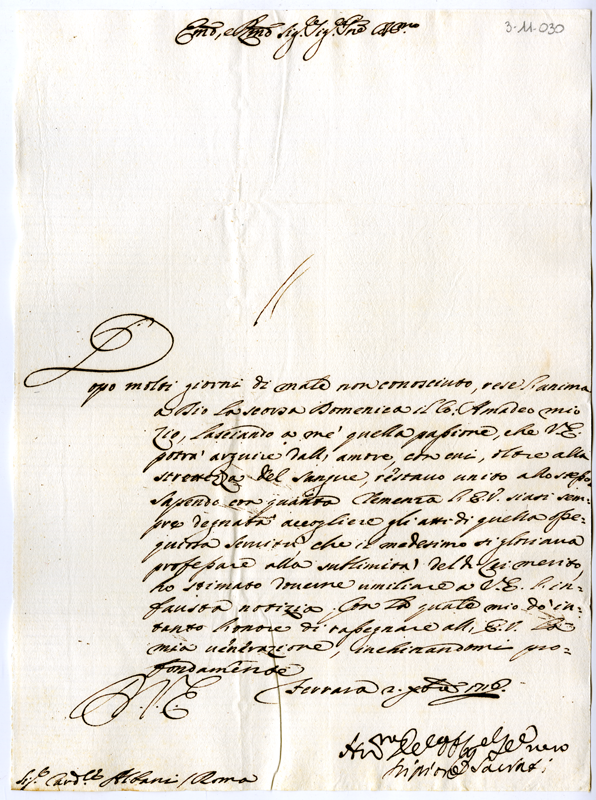 Emo, e Rmo Sig.r Sig.r Pne Colmo
3-11-030
Dopo molti giorni di male non conosciuto, rese l'anima
a Dio la scorsa Domenica il Co: Amadeo mio
Zio, lasciando a me quella passione, che V.E.
potrà arguire dall'amore, con cui, oltre alla
strettezza del sangue, restavo unito allo stesso.
Sapendo con quanta Clemenza l'E.V. siasi sem-
pre degnata accogliere gli atti di quella osse-
quiosa servitù, che il medesimo si gloriava
professare alla sublimità del di Lei merito,
ho stimato dovere umiliare a V.E. l'in-
fausta notizia. Con la quale mio do in-
tanto l'honore di rassegnare all'E.V. la
mia venerazione, inchinandomi pro-
fondamente
D.V.E. Ferrara 2. xbre 1718.
Scipione Sacrati
Sig.r Card.le Albani / Roma